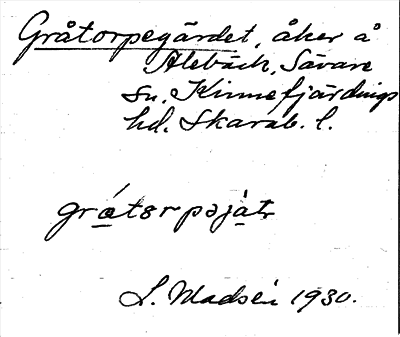 Gråtorpegärdet, åker å
Alebäck, Sävare
sn. Kinnefjärdings
hd. Skarab. l.
grátɛrpəjàtɛ
L. Madsén 1930.